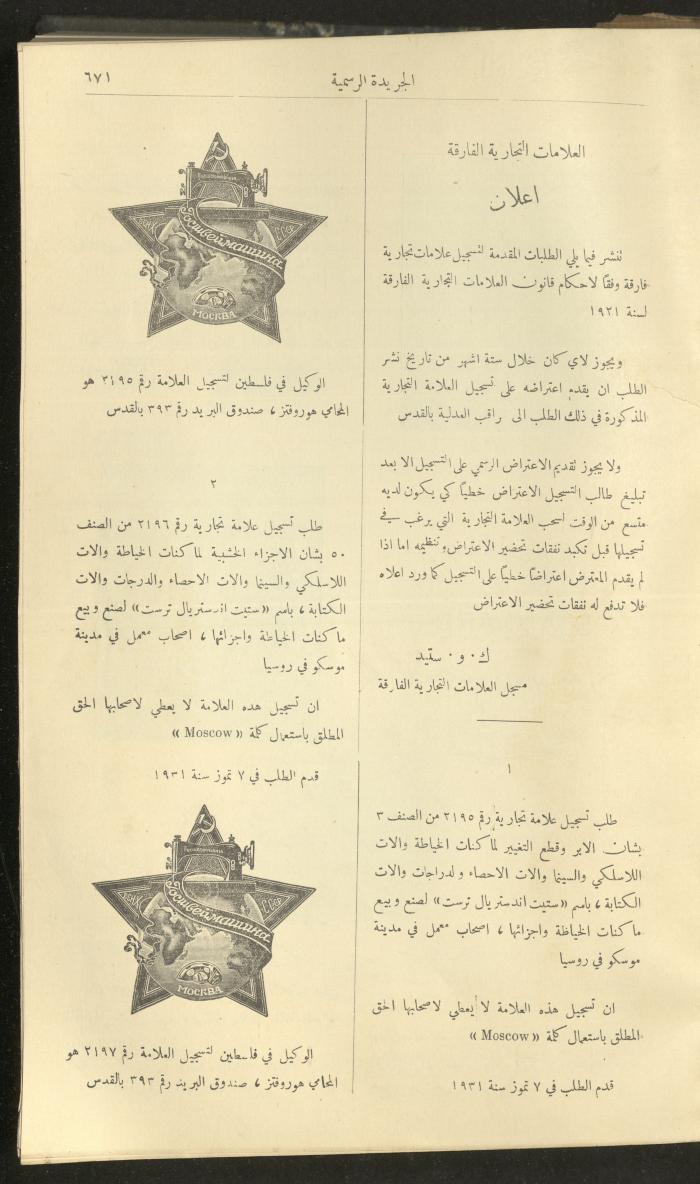 الجريدة الرسمية
٦٧١
العلامات التجارية الفارقة
اعلان
تنشر فيما يلي الطلبات المقدمة لتسجيل علامات تجارية
فارقة وفقًا لاحكام قانون العلامات التجارية الفارقة
لسنة ١٩٢١
ويجوز لاي كان خلال ستة اشهر من تاريخ نشر
الطلب ان يقدم اعتراضه على تسجيل العلامة التجارية
المذكورة في ذلك الطلب الى راقب العدلية بالقدس
ولا يجوز تقديم الاعتراض الرسمي على التسجيل الا بعد
تبليغ طالب التسجيل الاعتراض خطيًا كي يكون لديه
متسع من الوقت لسحب العلامة التجارية التي يرغب في
تسجيلها قبل تكبد نفقات تحضير الاعتراض وتنظيمه اما اذا
لم يقدم المعترض اعتراضًا خطيًا على التسجيل كما ورد اعلاه
فلا تدفع له نفقات تحضير الاعتراض
ك ٠ و ٠ ستيد
مسجل العلامات التجارية الفارقة
١
طلب تسجيل علامة تجارية رقم ٢١٩٥ من الصنف ٣
بشان الابر وقطع التغيير لماكنات الخياطة والات
اللاسلكي والسينما والات الاحصاء والدراجات والات
الكتابة ، باسم «ستيت اندستريال ترست» لصنع وبيع
ماكنات الخياطة واجزائها ، اصحاب معمل في مدينة
موسكو في روسيا
ان تسجيل هذه العلامة لا يعطي لاصحابها الحق
المطلق باستعمال كلمة «Moscow»
قدم الطلب في ٧ تموز سنة ١٩٣١
Госшвеймашина
СССР
МОСКВА
الوكيل في فلسطين لتسجيل العلامة رقم ٢١٩٥ هو
المحامي هوروفتز ، صندوق البريد رقم ٣٩٣ بالقدس
٢
طلب تسجيل علامة تجارية رقم ٢١٩٦ من الصنف
٥٠ بشان الاجزاء الخشبية لماكنات الخياطة والات
اللاسلكي والسينما والات الاحصاء والدرجات والات
الكتابة ، باسم «ستيت اندستريال ترست» لصنع وبيع
ماكنات الخياطة واجزائها ، اصحاب معمل في مدينة
موسكو في روسيا
ان تسجيل هده العلامة لا يعطي لاصحابها الحق
المطلق باستعمال كلمة «Moscow»
قدم الطلب في ٧ تموز سنة ١٩٣١
Госшвеймашина
СССР
МОСКВА
الوكيل في فلسطين لتسجيل العلامة رقم ٢١٩٧ هو
المحامي هوروفتز ، صندوق البريد رقم ٣٩٣ بالقدس